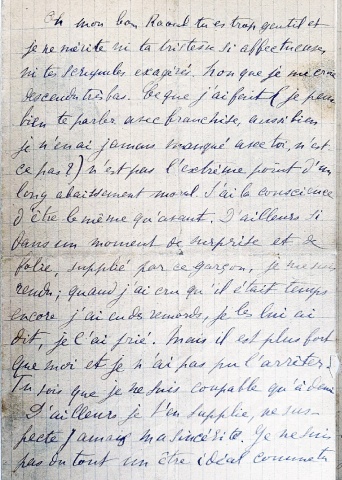 Oh mon bon Raoul tu es trop gentil et
je ne mérite ni ta tristesse si affectueuse
ni tes scrupules exagérés. Non que je me croie
descendu très bas. Ce que j'ai fait (je peux
bien te parler avec franchise, aussi bien
je n'en ai jamais manqué avec toi, n'est
ce pas ?) n'est pas l'extrême point d'un
long abaissement moral. J'ai la conscience
d'être le même qu'avant. D'ailleurs si
dans un moment de surprise et de
folie, supplié par ce garçon, je me suis
rendu ; quand j'ai cru qu'il était temps
encore j'ai eu des remords, je les lui ai
dit, je l'ai prié. Mais il est plus fort
que moi et je n'ai pas pu l'arrêter.
Tu vois que je ne suis coupable qu'à demi
D'ailleurs je t'en supplie, ne sus-
pecte jamais ma sincérité. Je ne suis
pas du tout un être idéal comme tu